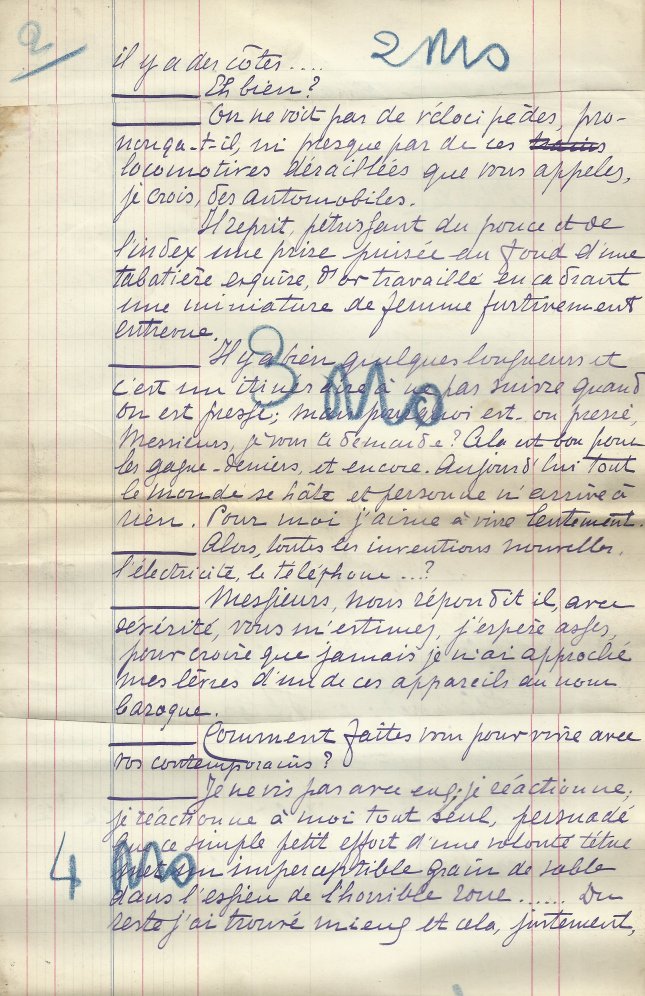 2
2 Mo
il y a des côtes....
——— Eh bien?
——— On ne voit pas de vélocipèdes, pro-
nonça-t-il, ni presque pas de ces trains
locomotives déraillées que vous appelez,
je crois, des automobiles.
Il reprit, pétrissant du pouce et de
l'index une prise puisée au fond d'une
tabatière exquise, d'or travaillé encadrant
une miniature de femme furtivement
entrevue.
——— Il y a bien quelques longueurs et
3 Mo
c'est un itinéraire à ne pas suivre quand
on est pressé; mais pourquoi est-on pressé,
Messieurs, je vous le demande? Cela est bon pour
les gagne-deniers, et encore. Aujourd'hui tout
le monde se hâte et personne n'arrive à
rien. Pour moi j'aime à vivre lentement.
——— Alors, toutes les inventions nouvelles,
l'électricité, le téléphone...?
——— Messieurs, nous répondit il, avec
sévérité, vous m'estimez, j'espère assez,
pour croire que jamais je n'ai approché
mes lèvres d'un de ces appareils au nom
baroque.
——— Comment faites vous pour vivre avec
vos contemporains?
——— Je ne vis pas avec eux; je réactionne,
je réactionne à moi tout seul, persuadé
que ce simple petit effort d'une volonté têtue
4 Mo
met un imperceptible grain de sable
dans l'essieu de l'horrible roue...... Du
reste j'ai trouvé mieux et cela, justement,